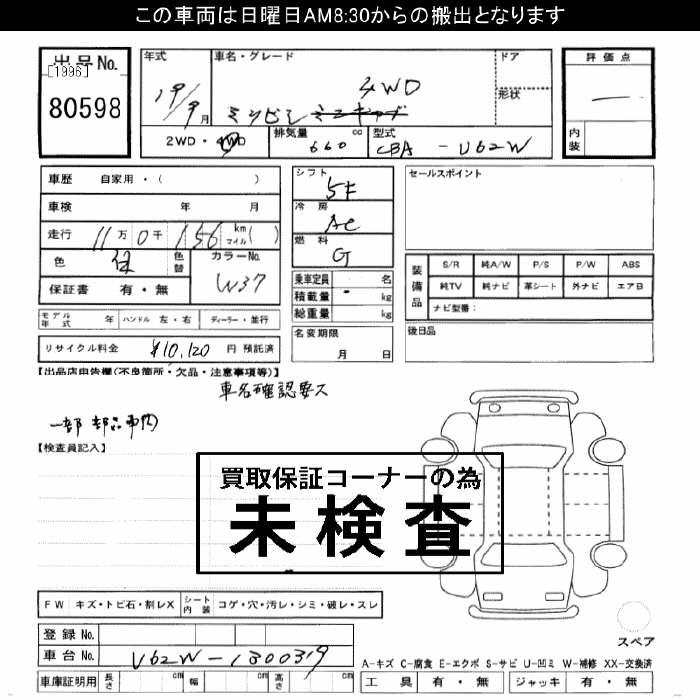 この車両は日曜日AM8:30からの搬出となります
出品No.
[1996]
80598
年式
19/9月
車名・グレード
4WD
ミツビシ ミニキャブ
ドア
形状
評価点
内装
2WD・4WD
排気量 cc
660
型式
CBA - U62W
車歴 自家用・( )
車検 年 月
走行 11万 0千 156 km マイル( )
色 白 色替
カラーNo. W37
保証書 有・無
シフト 5F
冷房 AC
燃料 G
セールスポイント
装備品
S/R 純A/W P/S P/W ABS
純TV 純ナビ 革シート 外ナビ エアB
ナビ型番:
乗車定員 名
積載量 - kg
総重量 kg
モデル年式 年 ハンドル 左・右 ディーラー・並行
名変期限 月 日
後日品
リサイクル料金 ¥10,120 円 預託済
【出品店申告欄(不良箇所・欠品・注意事項等)】
車名確認要ス
一部 部品車内
【検査員記入】
買取保証コーナーの為
未検査
FW キズ・トビ石・割レX シート内装 コゲ・穴・汚レ・シミ・破レ・スレ
登録No.
車台No. U62W-1300319
車庫証明用 長さ cm 幅 cm 高さ cm
スペア
A-キズ C-腐食 E-エクボ S-サビ U-凹ミ W-補修 XX-交換済
工具 有・無 ジャッキ 有・無